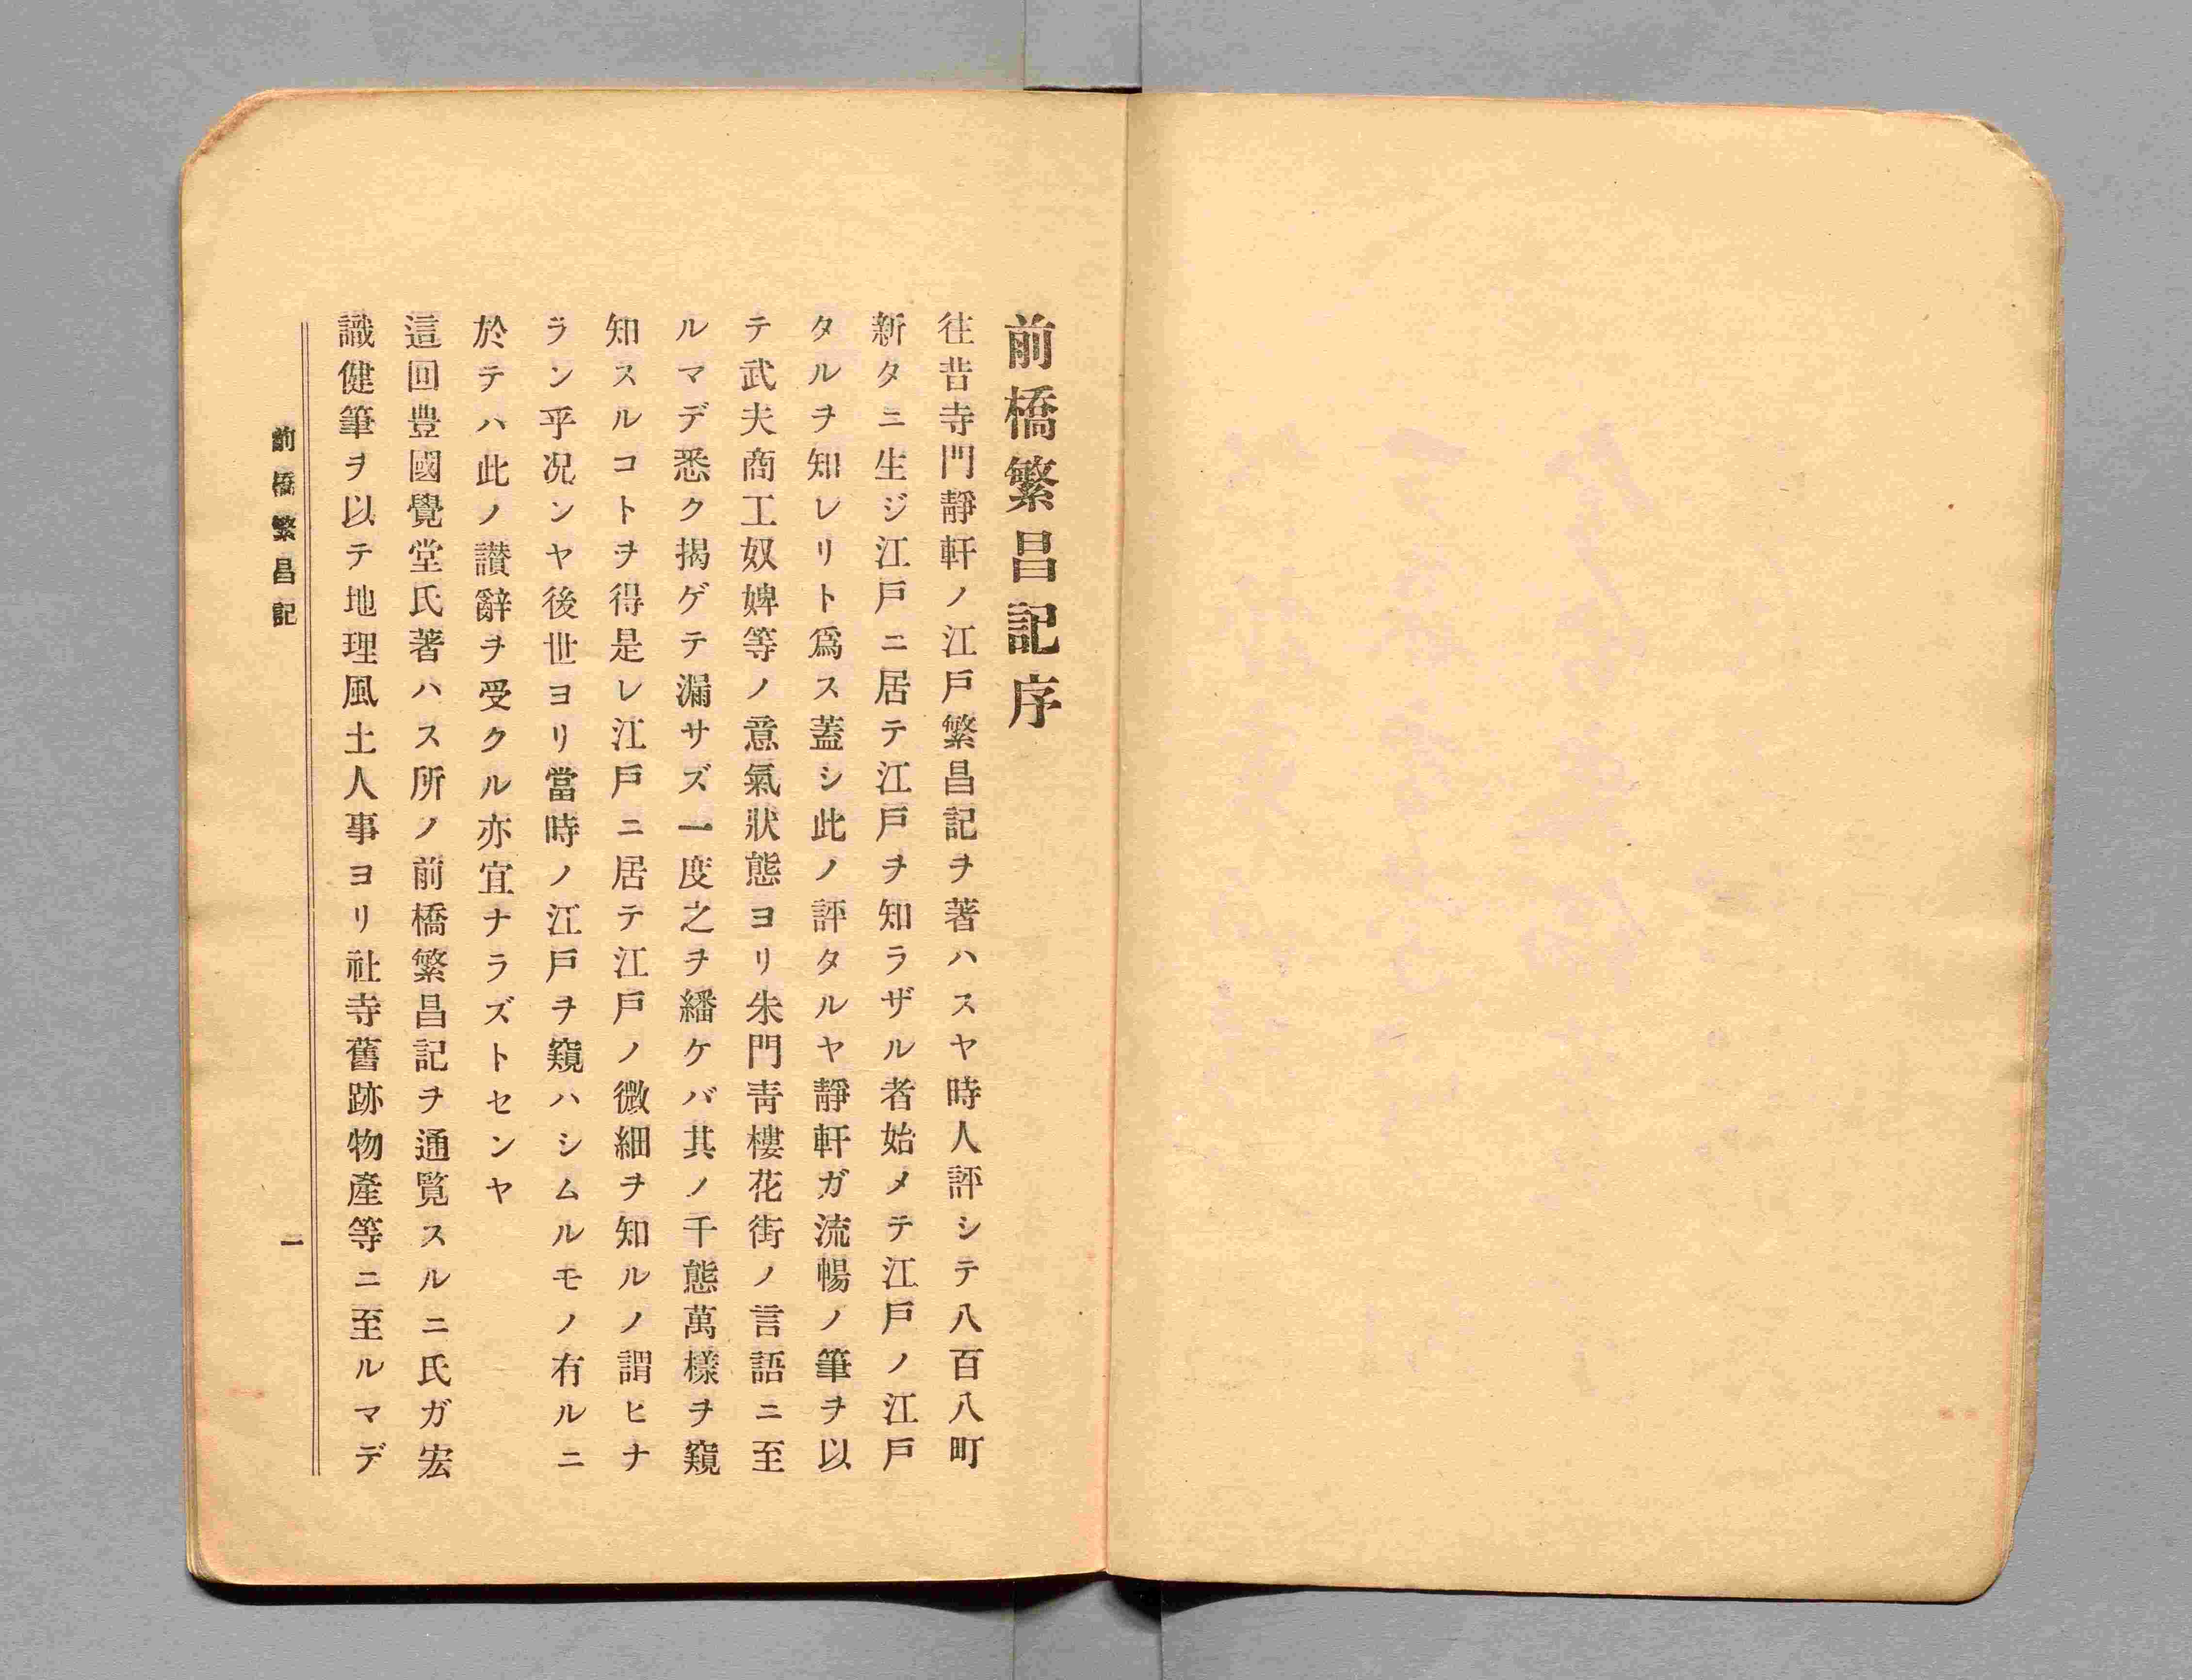 前橋繁昌記序
徃昔寺門靜軒ノ江戸繁昌記ヲ著ハスヤ時人評シテ八百八町
新タニ生ジ江戸ニ居テ江戸ヲ知ラザル者始メテ江戸ノ江戸
タルヲ知レリト爲ス蓋シ此ノ評タルヤ靜軒ガ流暢ノ筆ヲ以
テ武夫商工奴婢等ノ意氣狀態ヨリ朱門靑樓花街ノ言語ニ至
ルマデ悉ク揭ゲテ漏サズ一度之ヲ繙ケバ其ノ千態萬樣ヲ窺
知スルコトヲ得是レ江戸ニ居テ江戸ノ微細ヲ知ルノ謂ヒナ
ラン乎况ンヤ後世ヨリ當時ノ江戸ヲ窺ハシムルモノ有ルニ
於テハ此ノ讃辭ヲ受クル亦宜ナラズトセンヤ
這回豊國覺堂氏著ハス所ノ前橋繁昌記ヲ通覧スルニ氏ガ宏
識健筆ヲ以テ地理風土人事ヨリ社寺舊跡物產等ニ至ルマデ
前橋繁昌記
一